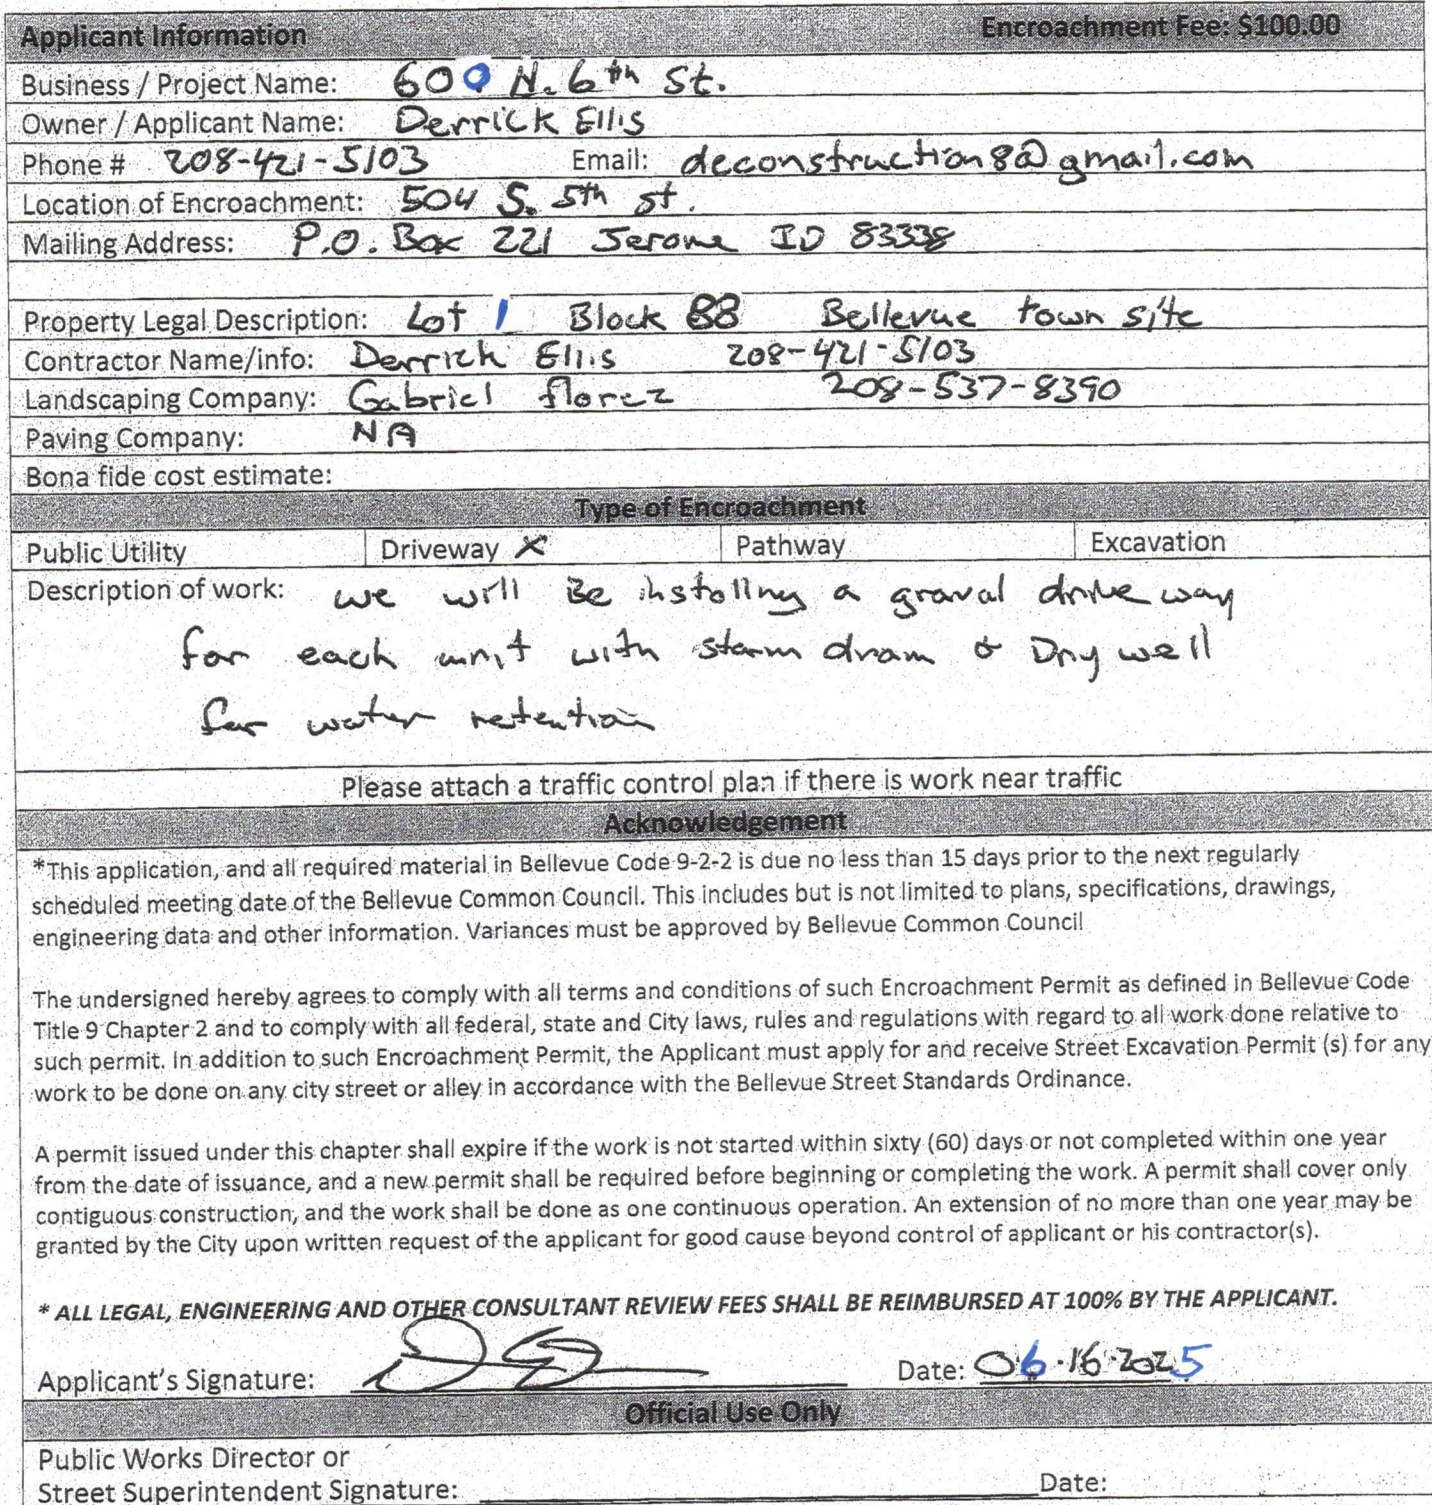 Applicant Information Encroachment Fee: $100.00
Business / Project Name: 600 N. 6th St.
Owner / Applicant Name: Derrick Ellis
Phone # 208-421-5103 Email: deconstruction8@gmail.com
Location of Encroachment: 504 S. 5th st.
Mailing Address: P.O. Box 221 Jerome ID 83338
Property Legal Description: Lot 1 Block 88 Bellevue town site
Contractor Name/info: Derrick Ellis 208-421-5103
Landscaping Company: Gabriel florez 208-537-8390
Paving Company: NA
Bona fide cost estimate:
Type of Encroachment
Public Utility Driveway X Pathway Excavation
Description of work: we will Be instollng a graval drive way
for each unit with storm dram & Dry well
for water retention
Please attach a traffic control plan if there is work near traffic
Acknowledgement
*This application, and all required material in Bellevue Code 9-2-2 is due no less than 15 days prior to the next regularly
scheduled meeting date of the Bellevue Common Council. This includes but is not limited to plans, specifications, drawings,
engineering data and other information. Variances must be approved by Bellevue Common Council
The undersigned hereby agrees to comply with all terms and conditions of such Encroachment Permit as defined in Bellevue Code
Title 9 Chapter 2 and to comply with all federal, state and City laws, rules and regulations with regard to all work done relative to
such permit. In addition to such Encroachment Permit, the Applicant must apply for and receive Street Excavation Permit (s) for any
work to be done on any city street or alley in accordance with the Bellevue Street Standards Ordinance.
A permit issued under this chapter shall expire if the work is not started within sixty (60) days or not completed within one year
from the date of issuance, and a new permit shall be required before beginning or completing the work. A permit shall cover only
contiguous construction, and the work shall be done as one continuous operation. An extension of no more than one year may be
granted by the City upon written request of the applicant for good cause beyond control of applicant or his contractor(s).
* ALL LEGAL, ENGINEERING AND OTHER CONSULTANT REVIEW FEES SHALL BE REIMBURSED AT 100% BY THE APPLICANT.
Applicant's Signature: Date: 06-16-2025
Official Use Only
Public Works Director or
Street Superintendent Signature: Date: